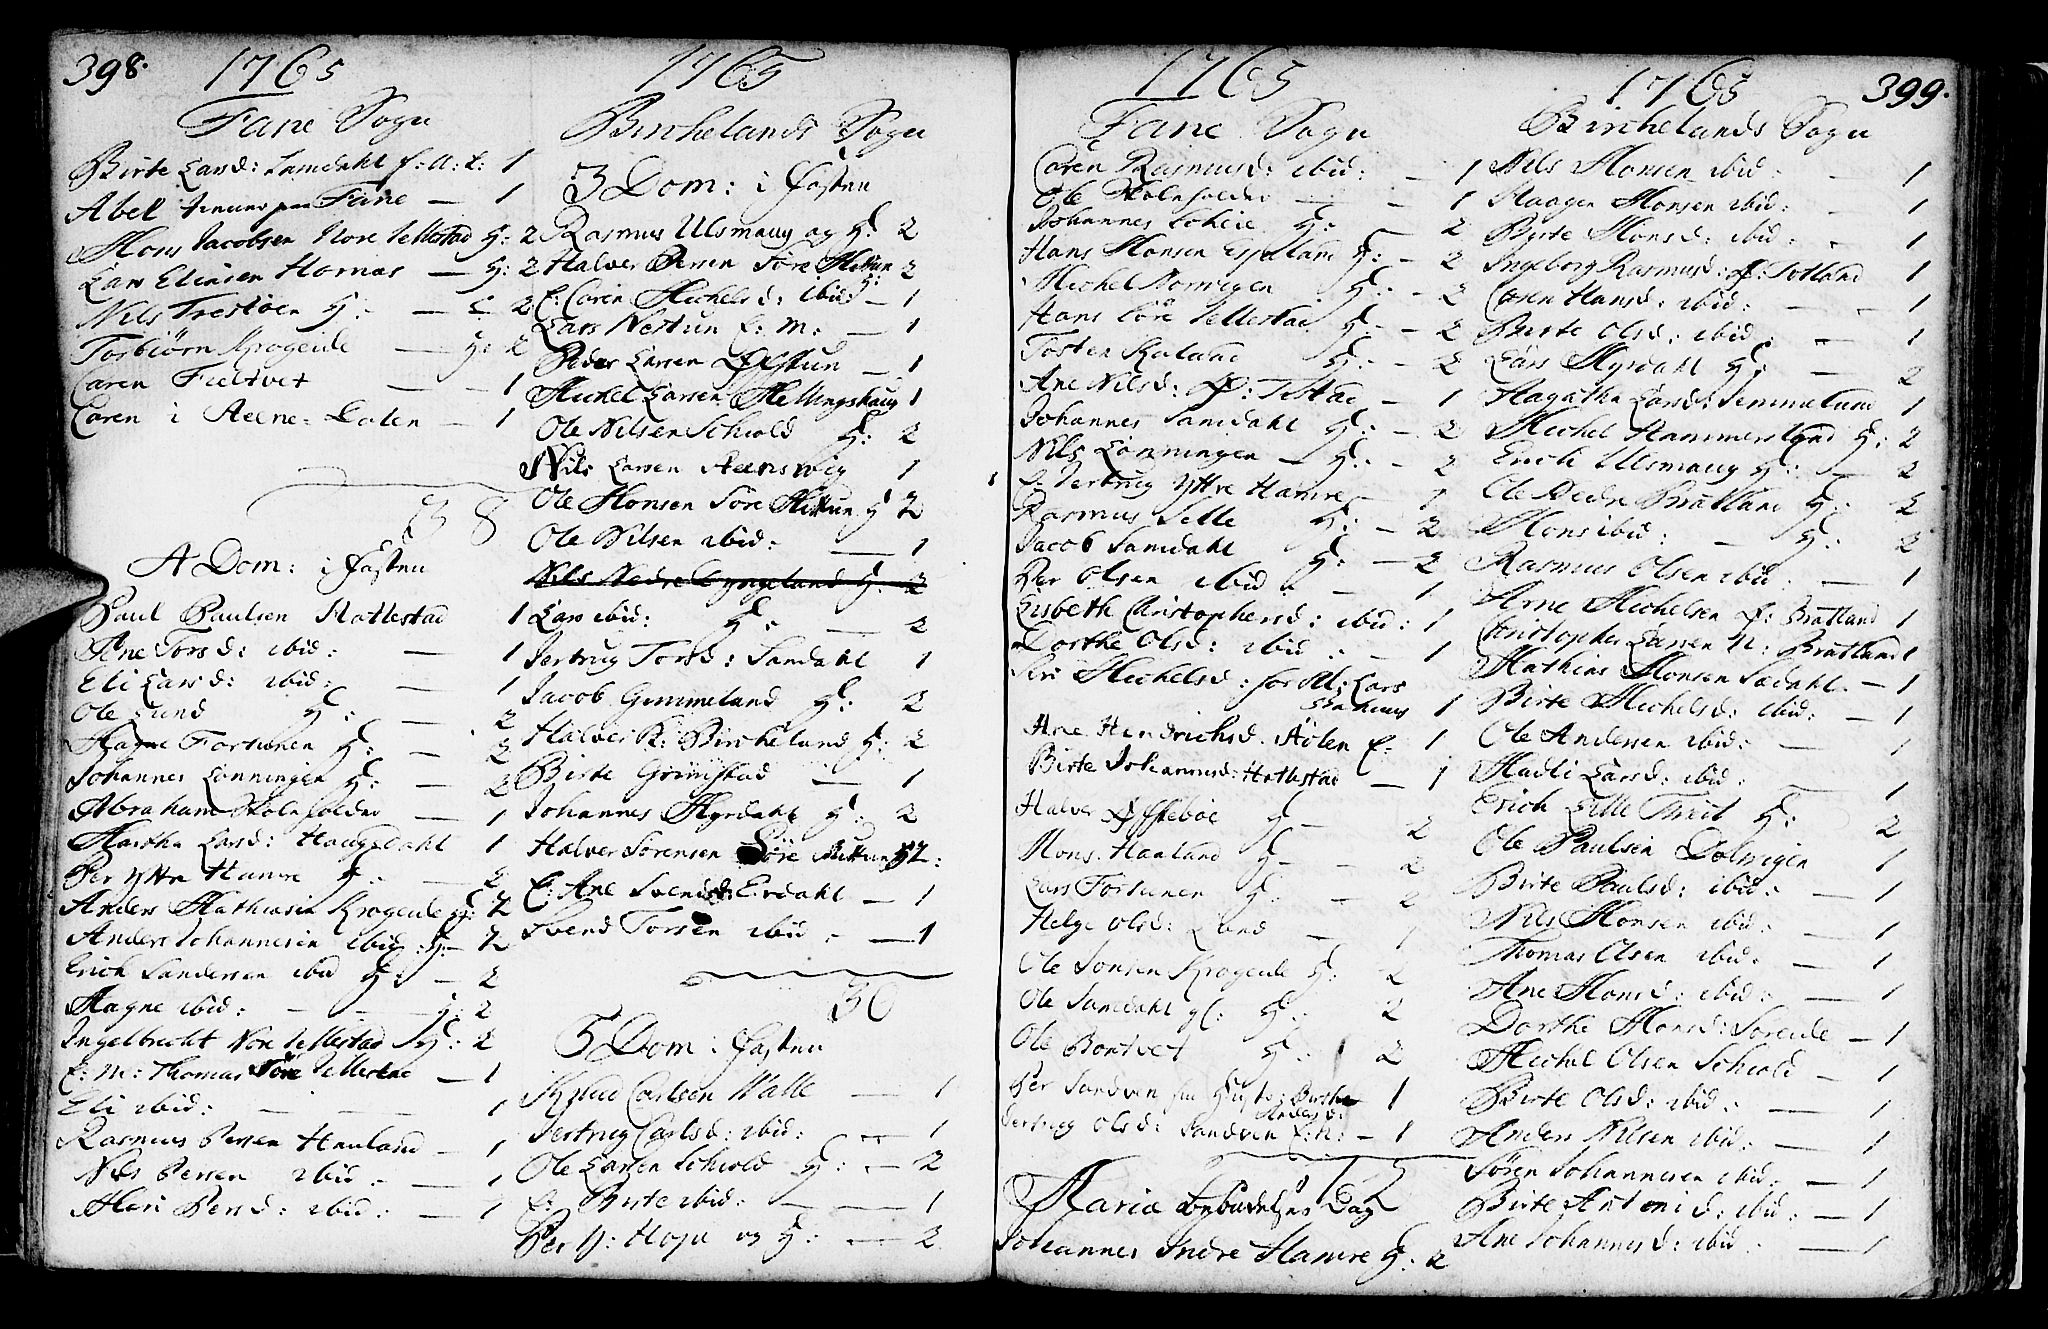 398.
1765
Fane Sogn
Birte Larsd: Samdahl f: a: k: 1
Abel paa Fane — 1
Mons Jacobsen Nore Tellestad H: 2
Lars Eliasen Homar — H: 2
Nils Trestöen H: — 2
Torbiörn Krogeide — H: 2
Caren Fieltvet — 1
Caren i — 1
38
4 Dom: i Fasten
Paul Paulsen Hattestad 1
Ane Torsd: ibid: — 1
Eli Larsd: ibid: — 1
Ole Lund H: — 2
Magne Fortunen H: — 2
Johannes Lönningen H: — 2
Abraham Skoleholder — 1
Martha Larsd: Haugsdahl 1
Per Yttre Hamre H: — 2
Anders Mathiesen Krogeide H: 2
Anders Johannesen ibid: H: — 2
Erich Sandersen ibid H: — 2
Magne ibid: — H: 2
Ingelbrecht Nore Tellestad H: 2
E: M: Thomas Söre Tellestad — 1
Eli ibid: — 1
Rasmus Persen Hauland — 1
Nils Persen ibid: — 1
Mari Persd: ibid: — 1
1765
Birchelands Sogn
3 Dom: i Fasten
Rasmus Ulsmaug og H: 2
Halver Persen Söre Midtun H: 2
E: Caren Michelsd: ibid: — 1
Lars Nestun E: M: — 1
Peder Larsen Öfstun — 1
Michel Larsen Hellingshaug 1
Ole Nilsen Schiold H: 2
Nils Larsen 1
Ole Monsen Söre Midtun H 2
Ole Nilsen ibid: — 1
Nils Nedre Tyngeland H: 2
Lars ibid: H: — 2
Jertrug Torsd: Samdahl 1
Jacob Gimmeland H: 2
Halver K: Bircheland H: 2
Birte Grimstad — 1
Johannes Myrdahl H: 2
Halver Sörensen Söre Midtun H 2:
E: Ane Svendsd: Erdahl — 1
Svend Torsen ibid: — 1
30
5 Dom: i Fasten
Knud Carlsen Natle — 1
Jertrug Carlsd: ibid: — 1
Ole Larsen Schiold H: — 2
E: Birte ibid: — 1
Per Y: Hope og H: — 2
1765
Fane Sogn
Caren Rasmusd: ibid: — 1
Ole Skoleholder — 1
Johannes H: — 2
Hans Monsen Espeland H: — 2
Michel Norvigen H: — 2
Hans Söre Tellestad H: — 2
Tosten Raland H: — 2
Ane Nilsd: Ö: Titstad — 1
Johannes Samdahl H: — 2
Nils Lönningen — H: — 2
E: Jertrug Yttre Hamre — 1
Rasmus Titlle H: — 2
Jacob Samdahl H: — 2
Per Olsen ibid: — 1
Lisbeth Christophersd: ibid: 1
Dorthe Olsd: ibid: — 1
Siri Michelsd: Lars 1
Ane Hendrichsd. E: 1
Birte Johannesd: Hattestad — 1
Halver Öffsteböe H — 2
Mons Hauland H — 2
Lars Fortunen H: — 2
Helge Olsd: Lund — 1
Ole Jonsen Krogeide H: 2
Ole Samdahl gl: H: 2
Ole Bontvet H: 2
Per Sandven Birthe Andersd: 1
Jertrug Olsd: Sandven E: K: — 1
42
Mariæ Bebudelses Dag
Johannes Indre Hamre H: 2
1765
399.
Birchelands Sogn
Nils Monsen ibid: — 1
Haagen Monsen ibid: — 1
Birte Monsd: ibid: — 1
Ingeborg Rasmusd: Ö: Totland 1
Caren Hansd: ibid: — 1
Birte Olsd: ibid: — 1
Lars Myrdahl H: — 2
Magatha Larsd: Semmelund 1
Michel Hammersland H: 2
Erich Ulsmaug H: — 2
Ole Nedre Bratland H: 2
Mons ibid: — H: 2
Rasmus Olsen ibid: — 1
Arne Michelsen Ö: Bratland 1
Christopher Larsen N: Bratland 1
Mathias Monsen Sædahl — 1
Birte Michelsd: ibid: — 1
Ole Andersen ibid: — 1
Madli Larsd: ibid: — 1
Erich Lille Tveit H: 2
Ole Paulsen Dolvigen 1
Birte Paulsd: ibid: — 1
Nils Monsen ibid: — 1
Thomas Olsen ibid: — 1
Ane Monsd: ibid: — 1
Dorthe Monsd: Söreide — 1
Michel Olsen Schiold — 1
Birte Olsd: ibid: — 1
Anders Nilsen ibid: — 1
Sören Johannesen ibid: — 1
Birte Antonid: ibid: — 1
Ane Johannesd: ibid: — 1